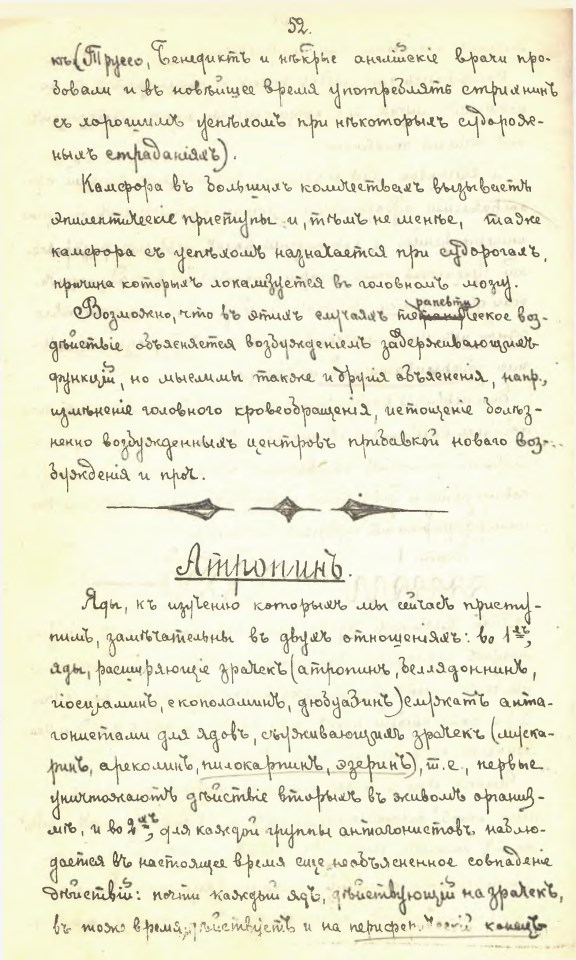 52.
къ (Труссо, Бенедиктъ и нѣкрые англійскіе врачи про-
бовали и въ новѣйщее время употреблять стрихнинъ
съ хорошимъ успѣхомъ при нѣкоторыхъ судорож-
ныхъ страданіяхъ).
Камфора въ большихъ количествахъ вызываетъ
эпилептическіе приступы и, тѣмъ не менѣе, также
камфора съ успѣхомъ назначается при судорогахъ,
причина которыхъ локализуется въ головномъ мозгу.
Возможно, что въ этихъ случаяхъ терапевтическое воз-
дѣйствіе объясняется возбужденіемъ задерживающихъ
функцій, но мыслимы также и другія объясненія, напр.,
измѣненіе головного кровеобращенія, истощеніе болѣз-
ненно возбужденныхъ центровъ прибавкой новаго воз-
бужденія и проч.
Атропинъ.
Яды, къ изученію которыхъ мы сейчасъ присту-
пимъ, замѣчательны въ двухъ отношеніяхъ: во 1хъ,
яды, расширяющіе зрачекъ (атропинъ, белладоннинъ,
гіосціаминъ, скополаминъ, дюбуазинъ) служатъ анта-
гонистами для ядовъ, съуживающихъ зрачекъ (муска-
ринъ, ареколинъ, пилокарпинъ, эзеринъ), т.е., первые
уничтожаютъ дѣйствіе вторыхъ въ живомъ организ-
мѣ, и во 2хъ, для каждой группы антагонистовъ наблю-
дается въ настоящее время еще необъясненное совпаденіе
дѣйствій: почти каждый ядъ, дѣйствующій на зрачекъ,
въ тоже время дѣйствуетъ и на периферическій конецъ